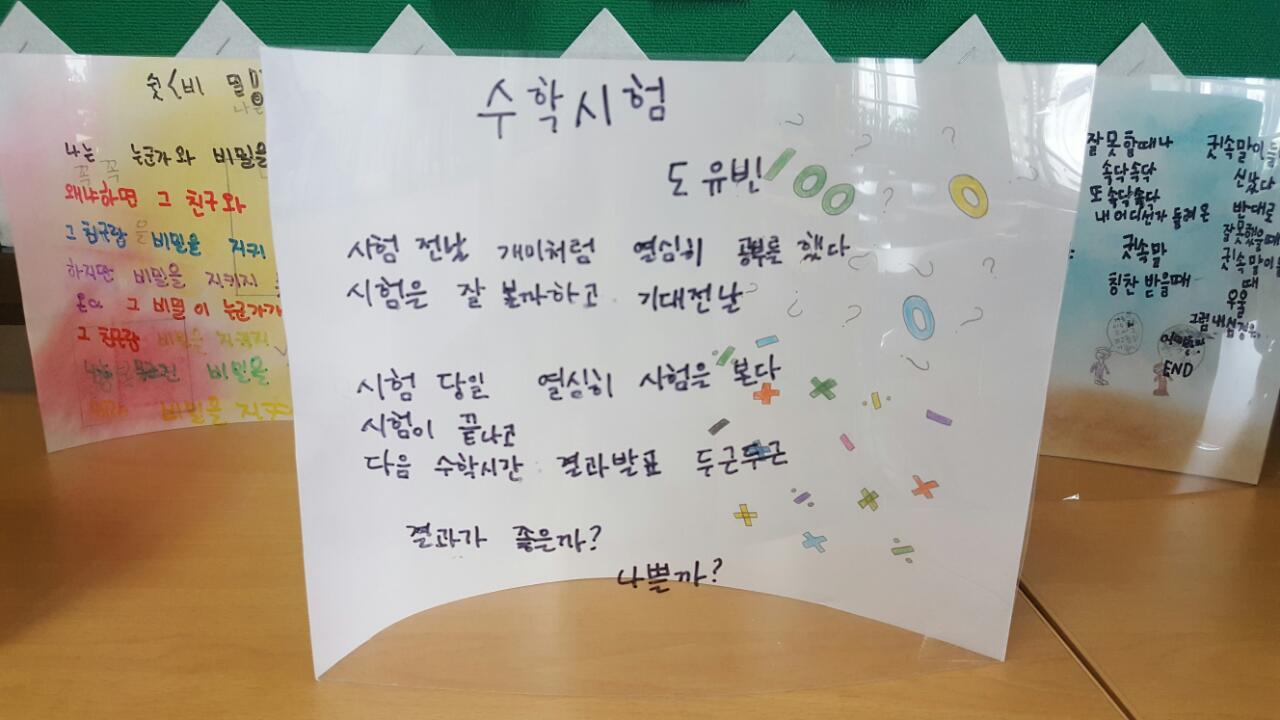 수학시험
도유빈
100
0
시험 전날 개미처럼 열심히 공부를 했다
시험은 잘 볼까하고 기대전날
0
시험 당일 열심히 시험을 본다
시험이 끝나고
다음 수학시간 결과발표 두근두근
결과가 좋은까?
나쁠까?
쉿<비 밀
나는 누군가와 비밀을
꼭 꼭
왜냐하면 그 친구와
그 친구랑 비밀을 지키
하지만 비밀을 지키지
그 비밀이 누군가가
그 친구랑 비밀을 지키지
비밀을
비밀을 지키
잘못할때나
속닥속닥
또 속닥속닥
내 어디선가 들려온
귓속말
칭찬 받을때
귓속말이 들
신났다
반대로
잘못했을때
귓속말이
때
우울
그럼 내심정은
END